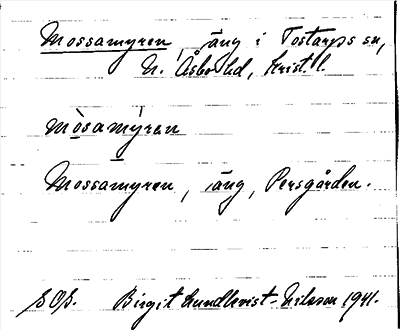 Mossamyren, äng i Tostarps sn,
N. Åsbo hd, Krist. l.
mòsamýren
Mossamyren, äng, Persgården.
SOB. Birgit Lundkvist-Nilsson 1941.